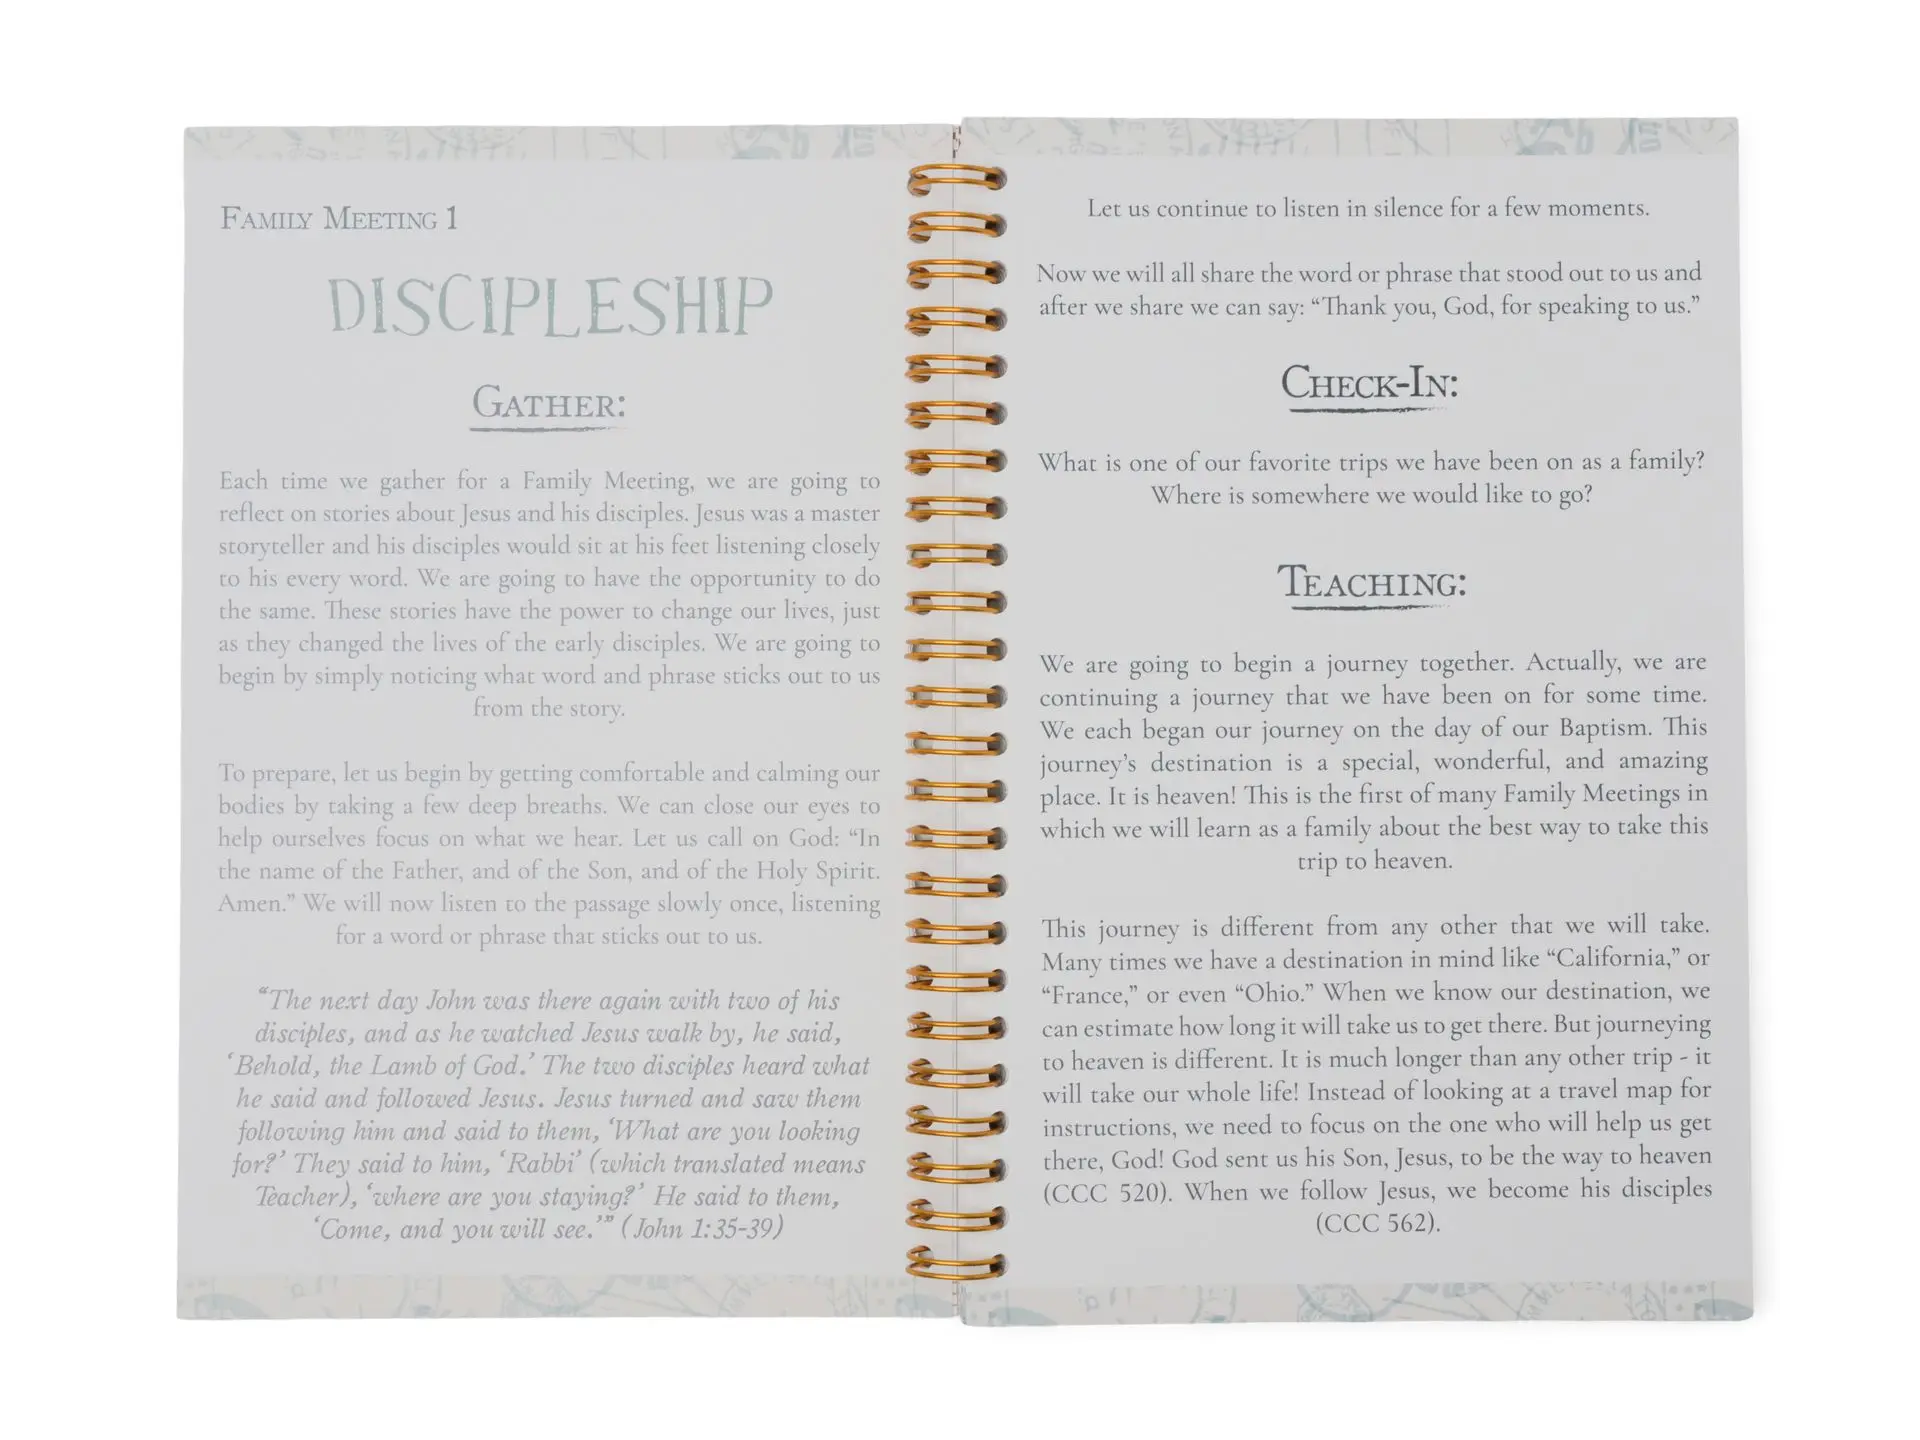 FAMILY MEETING 1
DISCIPLESHIP
GATHER:
Each time we gather for a Family Meeting, we are going to
reflect on stories about Jesus and his disciples. Jesus was a master
storyteller and his disciples would sit at his feet listening closely
to his every word. We are going to have the opportunity to do
the same. These stories have the power to change our lives, just
as they changed the lives of the early disciples. We are going to
begin by simply noticing what word and phrase sticks out to us
from the story.
To prepare, let us begin by getting comfortable and calming our
bodies by taking a few deep breaths. We can close our eyes to
help ourselves focus on what we hear. Let us call on God: “In
the name of the Father, and of the Son, and of the Holy Spirit.
Amen.” We will now listen to the passage slowly once, listening
for a word or phrase that sticks out to us.
“The next day John was there again with two of his
disciples, and as he watched Jesus walk by, he said,
‘Behold, the Lamb of God.’ The two disciples heard what
he said and followed Jesus. Jesus turned and saw them
following him and said to them, ‘What are you looking
for?’ They said to him, ‘Rabbi’ (which translated means
Teacher), ‘where are you staying?’ He said to them,
‘Come, and you will see.’” (John 1:35-39)
Let us continue to listen in silence for a few moments.
Now we will all share the word or phrase that stood out to us and
after we share we can say: “Thank you, God, for speaking to us.”
CHECK-IN:
What is one of our favorite trips we have been on as a family?
Where is somewhere we would like to go?
TEACHING:
We are going to begin a journey together. Actually, we are
continuing a journey that we have been on for some time.
We each began our journey on the day of our Baptism. This
journey’s destination is a special, wonderful, and amazing
place. It is heaven! This is the first of many Family Meetings in
which we will learn as a family about the best way to take this
trip to heaven.
This journey is different from any other that we will take.
Many times we have a destination in mind like “California,” or
“France,” or even “Ohio.” When we know our destination, we
can estimate how long it will take us to get there. But journeying
to heaven is different. It is much longer than any other trip - it
will take our whole life! Instead of looking at a travel map for
instructions, we need to focus on the one who will help us get
there, God! God sent us his Son, Jesus, to be the way to heaven
(CCC 520). When we follow Jesus, we become his disciples
(CCC 562).